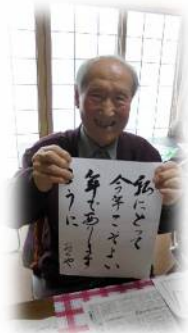 私にとって
今年こそよい
年でありま す
ように